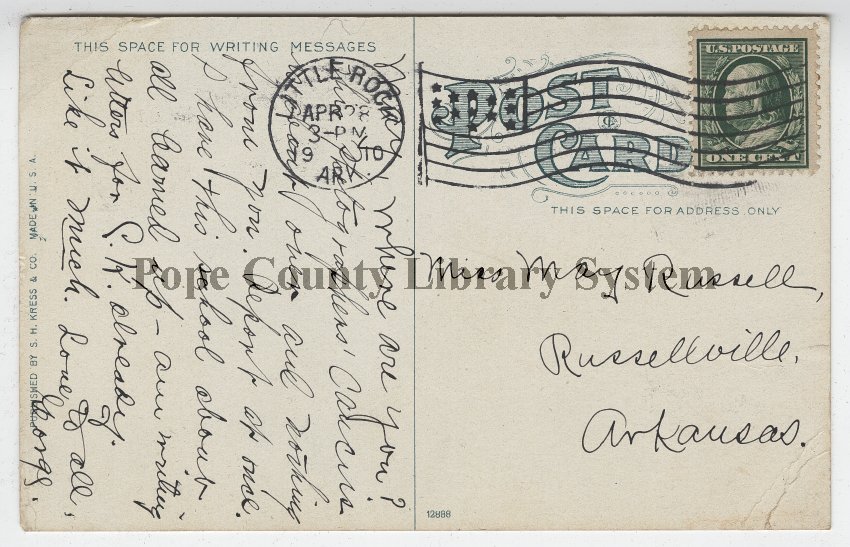 THIS SPACE FOR WRITING MESSAGES
May, where are you?
Stenographers' Caucus
is near over and nothing
from you. Report at once.
I have this school about
all learned up – am writing
letters for G. W. already.
Like it much. Love to all,
LITTLE ROCK
APR 28
3-PM
19 10
ARK.
U.S. POSTAGE
ONE CENT
POST
CARD
THIS SPACE FOR ADDRESS ONLY
Miss May Russell,
Russellville,
Arkansas.
Pope County Library System
PUBLISHED BY S. H. KRESS & CO. MADE IN U. S. A.
12888